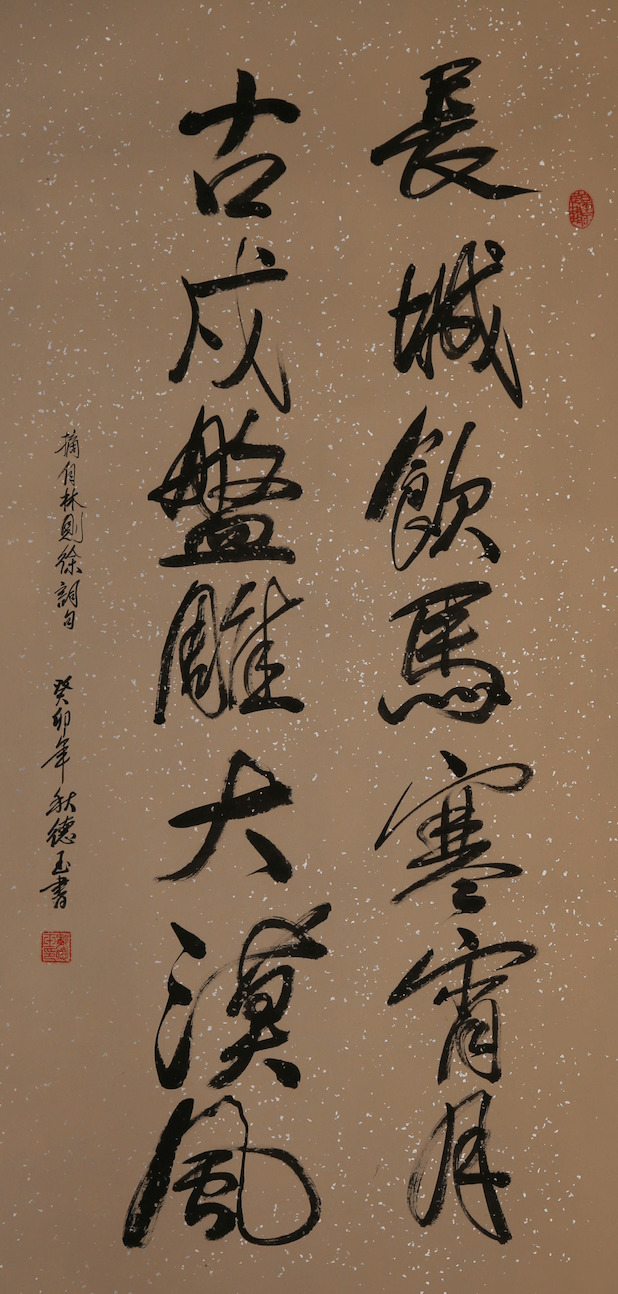 長城飲馬寒宵月
古戍盤雕大漠風
摘自林則徐詞句 癸卯年秋德玉書